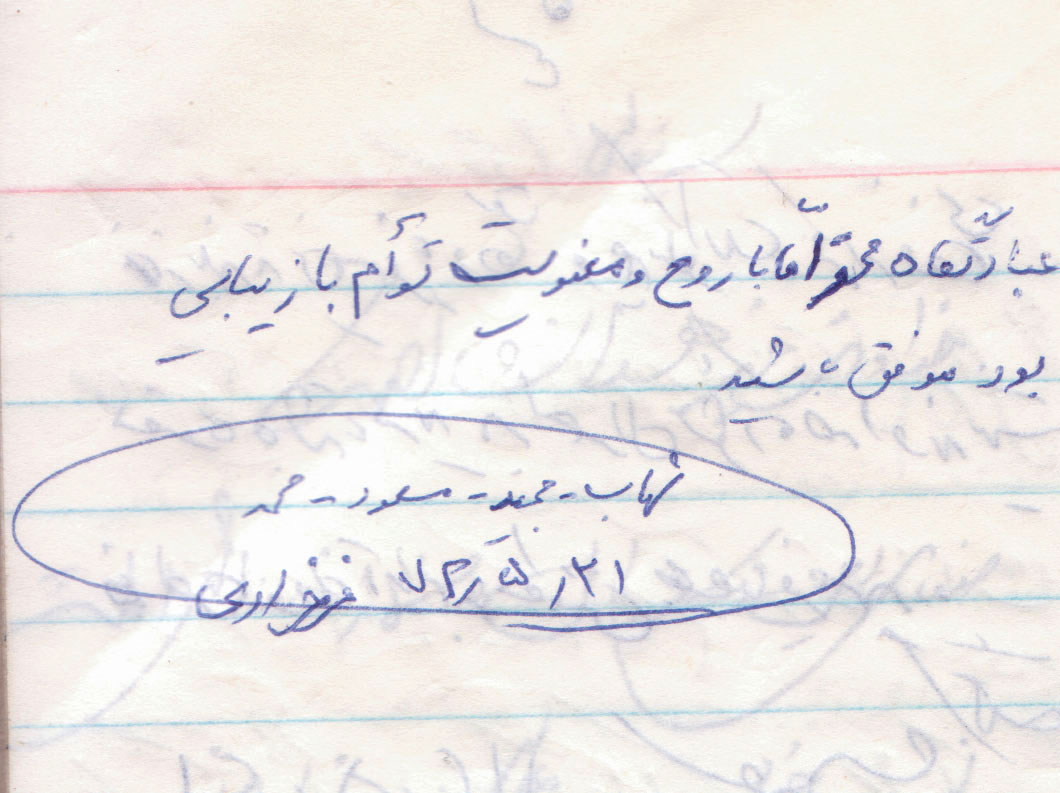 عبادتگاه محقر اما با روح و معنویت توأم با زیبایی
بود. موفق باشید
شهاب - مجید - مسعود - محمد
۷۲٫۵٫۳۱